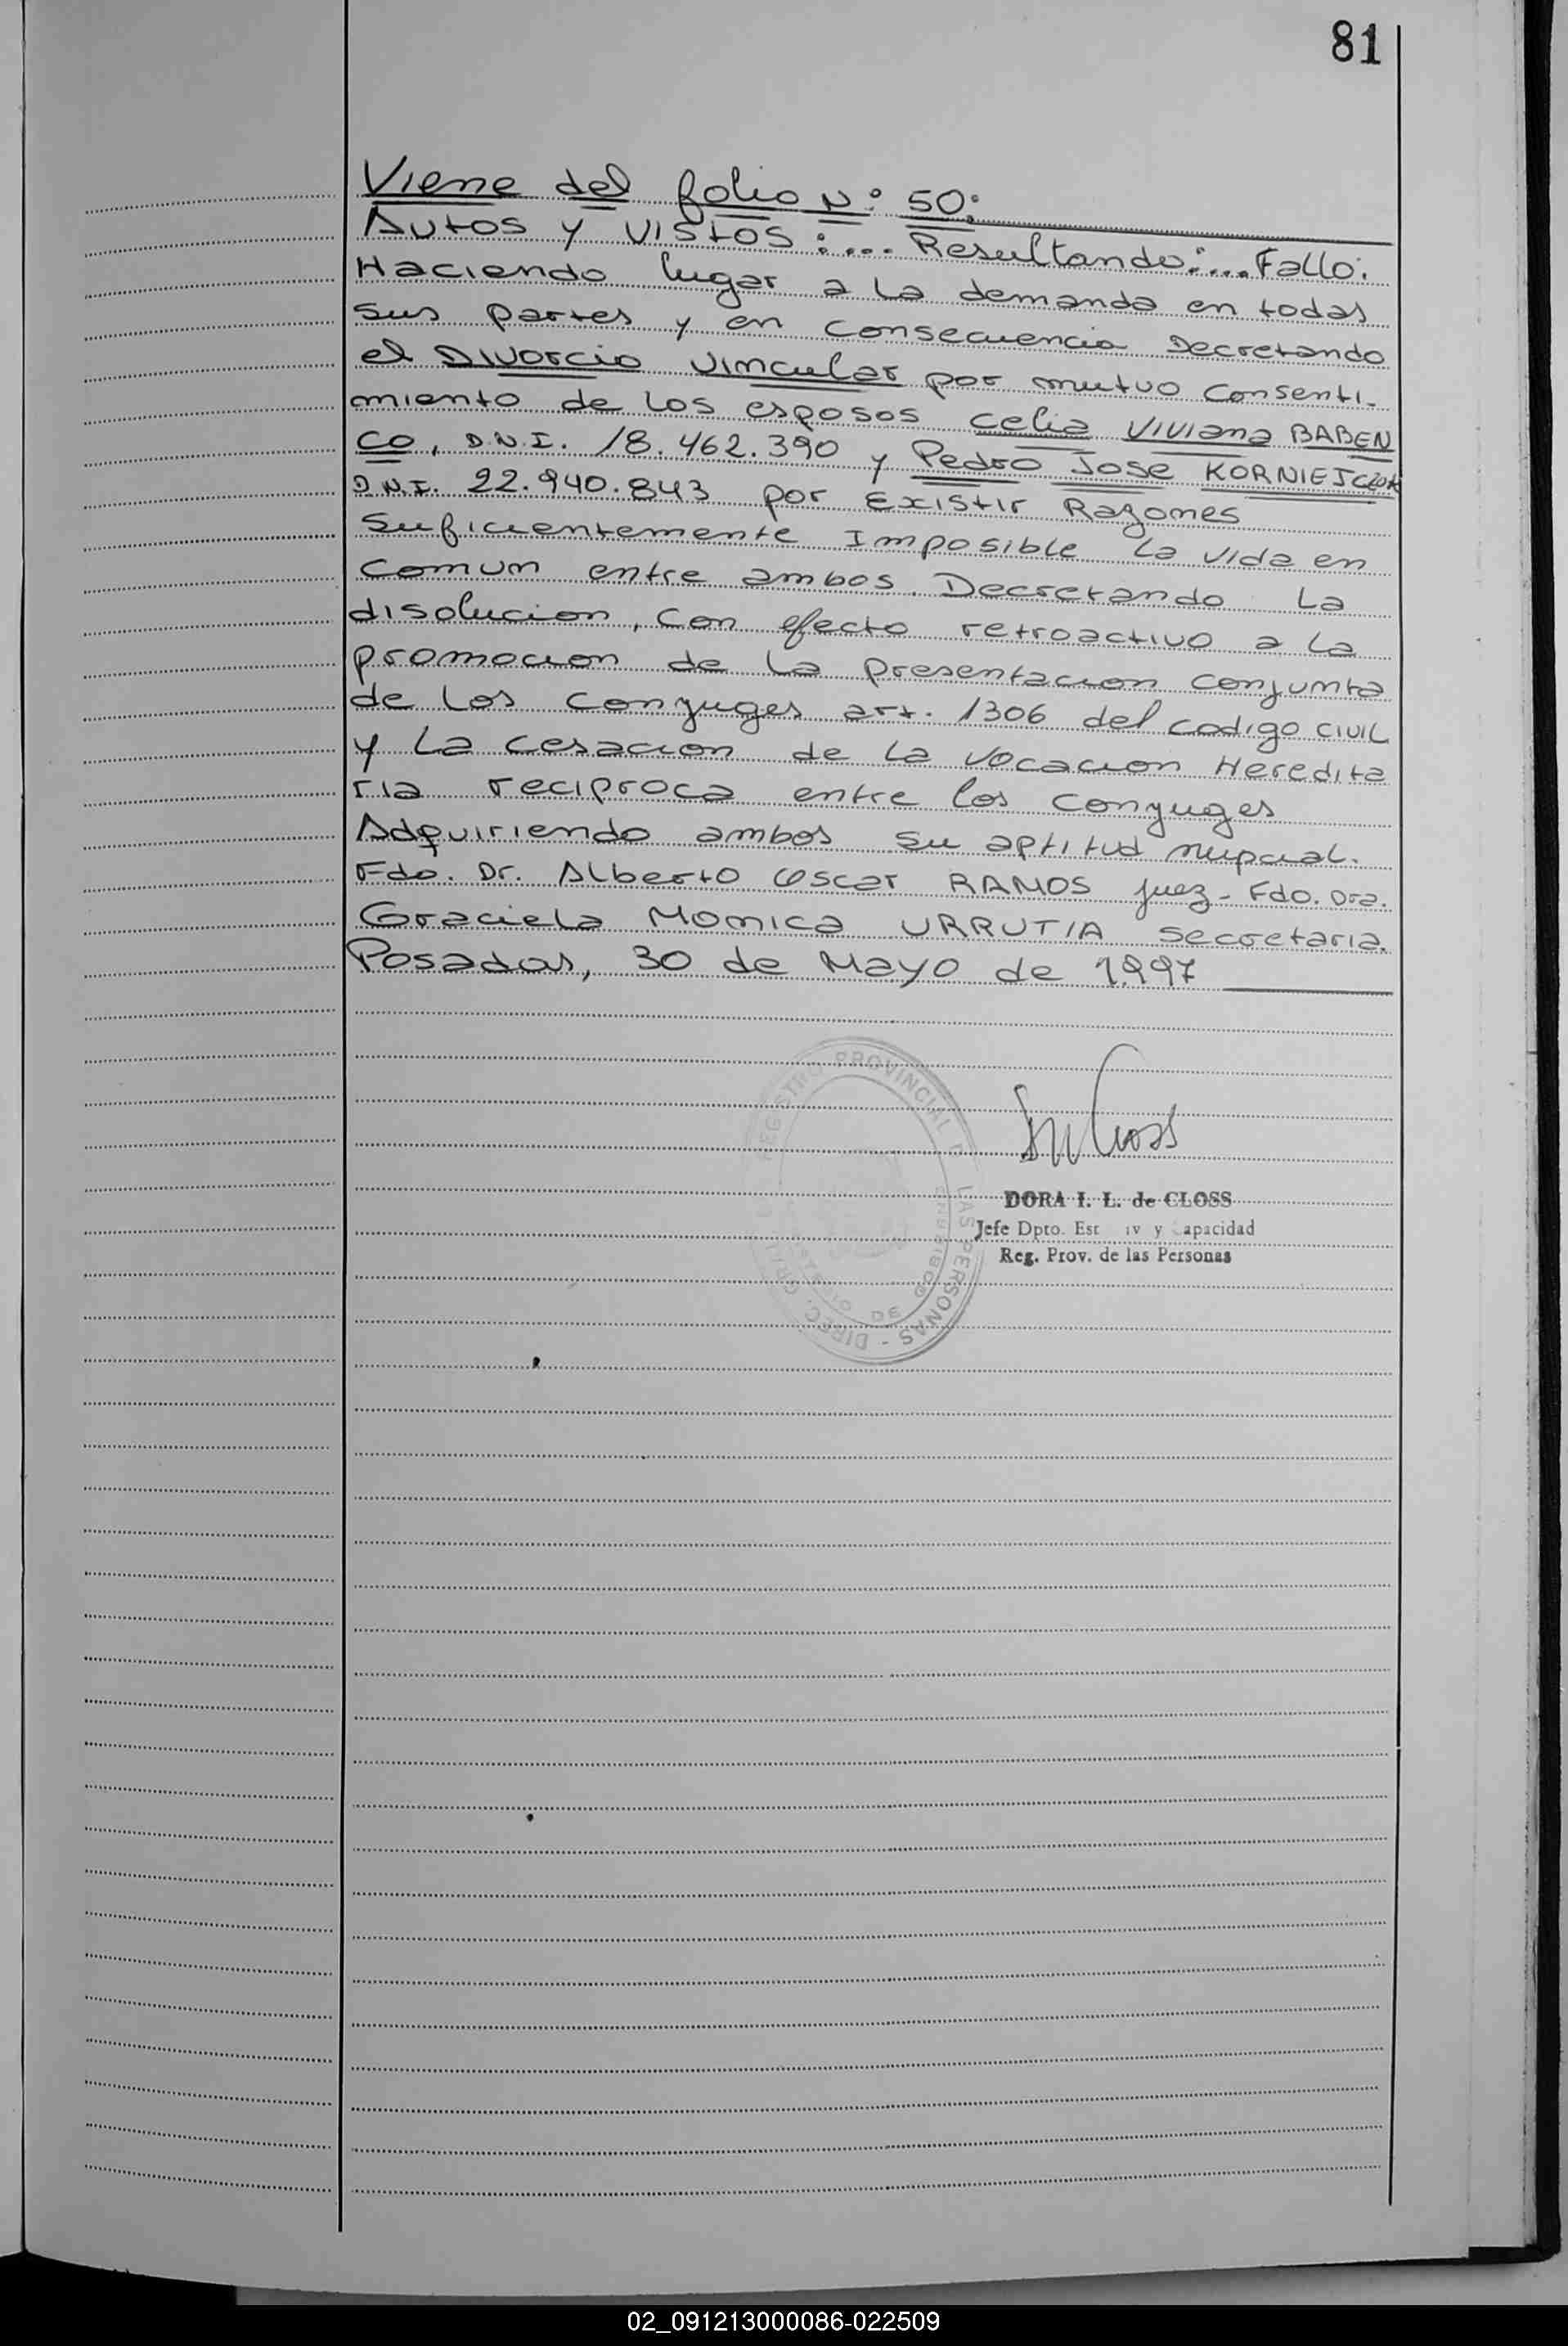 81
Viene del folio Nº 50:
Autos y Vistos:... Resultando:... Fallo:
Haciendo lugar a la demanda en todas
sus partes y en consecuencia Decretando
el Divorcio Vincular por mutuo consenti-
miento de los esposos Celia Viviana BABEN
CO, D.N.I. 18.462.390 y Pedro Jose
D.N.I. 22.940.843 por Existir Razones
Suficientemente Imposible la vida en
comun entre ambos. Decretando la
disolucion, con efecto retroactivo a la
promocion de la presentacion conjunta
de los conyuges art. 1306 del codigo civil
y la cesacion de la vocacion Heredita
ria reciproca entre los conyuges
Adquiriendo ambos su aptitud nupcial.
Fdo. Dr. Alberto Oscar RAMOS juez - Fdo. Dra.
Graciela Monica URRUTIA secretaria.
Posadas, 30 de Mayo de 1997
REGISTRO PROVINCIAL DE LAS PERSONAS - DIREC. GRAL.
DE GOBIERNO
DORA I. L. de CLOSS
Jefe Dpto. Est iv y apacidad
Reg. Prov. de las Personas
02_091213000086-022509